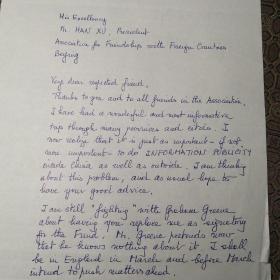 His Excellency
Mr. HAN XU, President
Association for Friendship with Foreign Countries
Beijing
Very dear respected friend,
Thanks to you and to all friends in the Association,
I have had a wonderful and most informative
trip through many provinces and cities. I
now realize that it is just as important - if not
more important - to do INFORMATION PUBLICITY
inside China as well as outside. I am thinking
about this problem, and as usual hope to
have your good advice.
I am still "fighting" with Graham Greene
about having you replace me as signatory
for the Fund. Mr. Greene pretends now
that he knows nothing about it. I shall
be in England in March and before March
intend to push matters ahead.